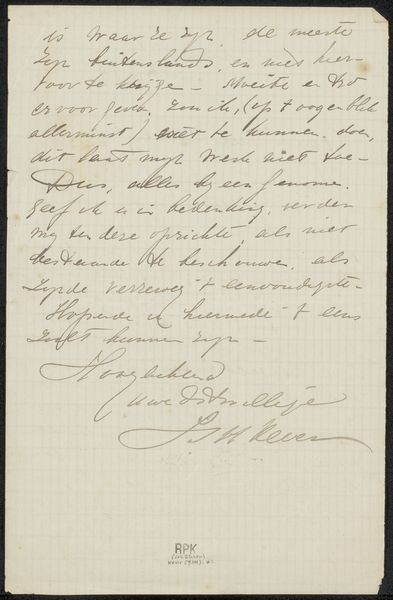 is waar ze zijn. de meeste
zijn buitenslands, en niet hier-
voor te krijgen - Moeite en tijd
er voor geven, zou ik, (op 't oogenblik
allerminst) niet te kunnen doen,
dit laat mijn werk niet toe -
Dus, alles bijeen genomen.
geef ik u in bedenking, verder
mij ten deze opzichte, als niet
bestaande te beschouwen, als
zijnde verreweg 't eenvoudigste -
Hopende u hiermede 't eens
zult kunnen zijn -
Hoogachtend
uwe dwillige
J S H Kever
RPK